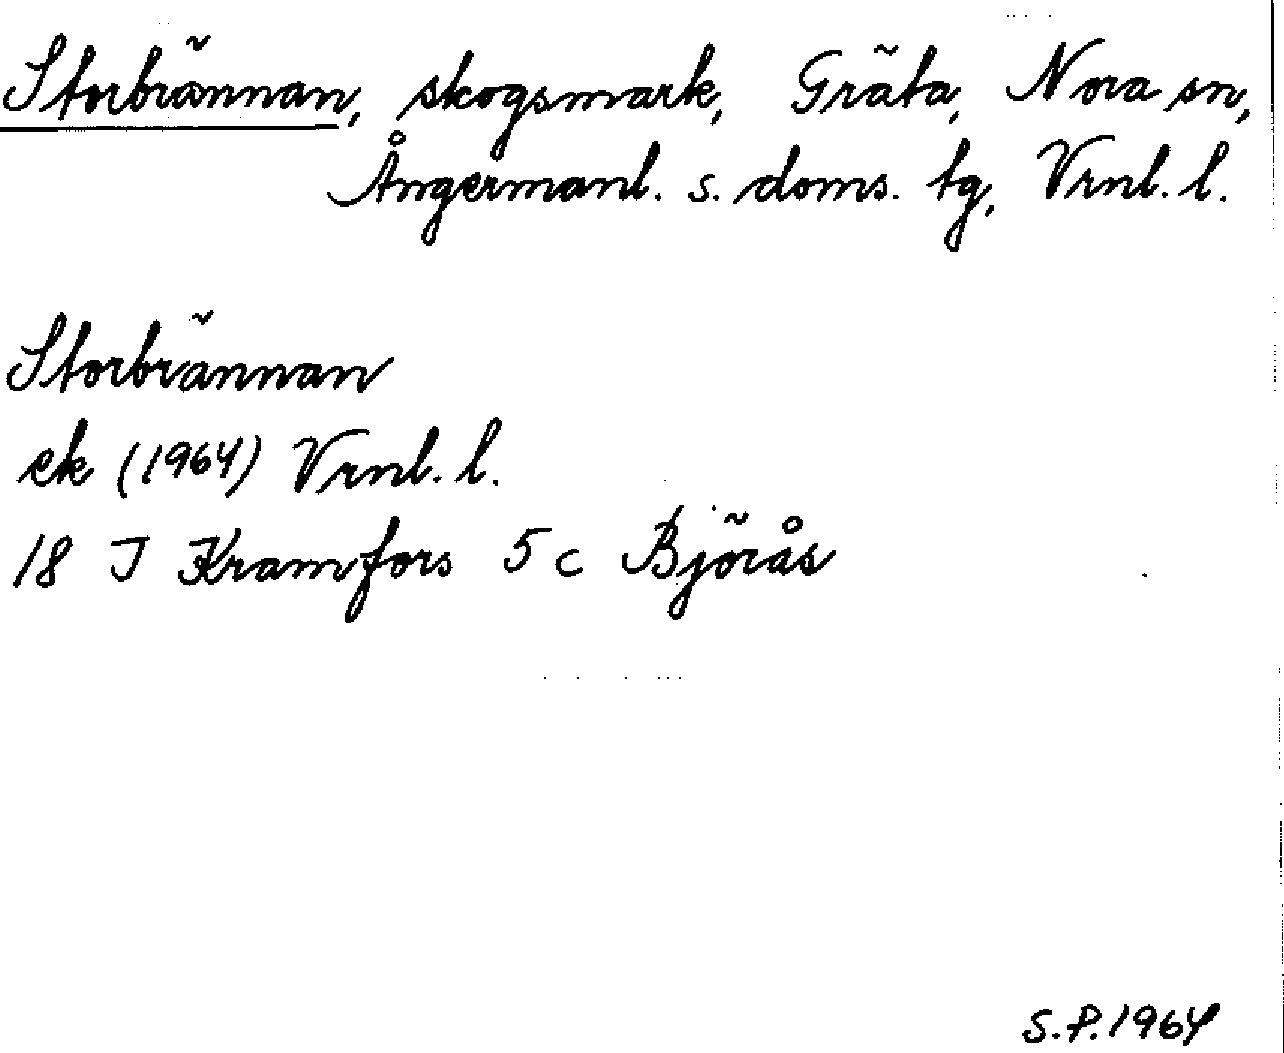 Storbrännan, skogsmark, Gräta, Nora sn,
Ångermanl. s. doms. tg, Vrnl. l.
Storbrännan
ek (1964) Vrnl. l.
18 J Kramfors 5 c Björås
S.P. 1964